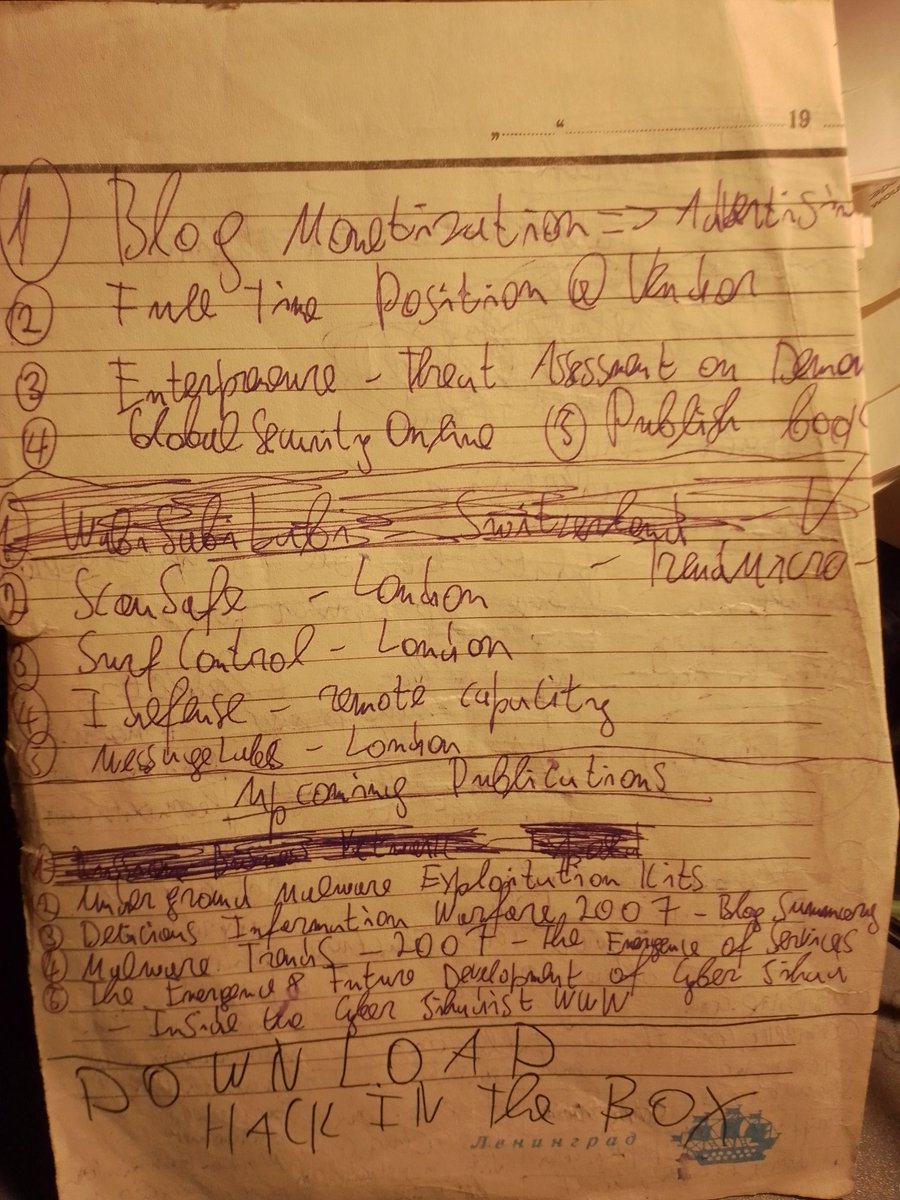 „ ........ “ ........ 19 ...
① Blog Monetization => Advertisin
② Full Time Position @ Vendor
③ Enterpreneure - Threat Assessment on Deman
④ GlobalSecurityOnline ⑤ Publish boo
① WabiSabiLabi - Switzerland
- TrendMicro -
② ScanSafe - London
③ SurfControl - London
④ IDefense - remote capability
⑤ MessageLabs - London
Upcoming Publications
①
② Underground Malware Exploitation Kits
③ Delicious Information Warfare 2007 - Blog Summary
④ Malware Trends - 2007 - the Emergence of Services
⑤ The Emergence & Future Development of Cyber Jihad
- Inside the Cyber Jihadist WWW
DOWNLOAD
HACK IN The BOX
Ленинград